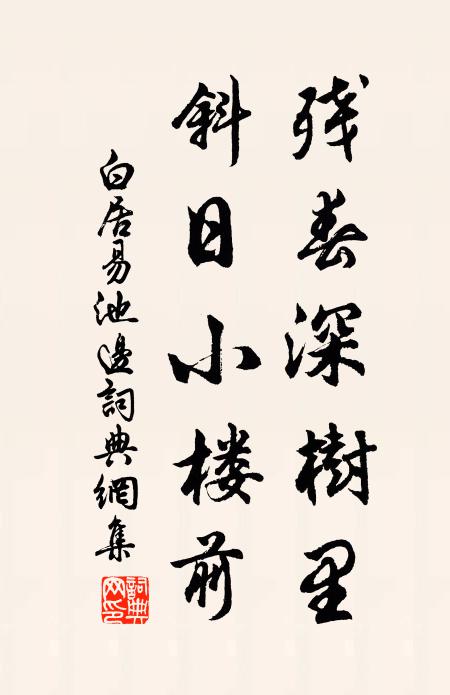 残春深樹里
斜日小楼前
白居易池邊詞典網集
詞典网印